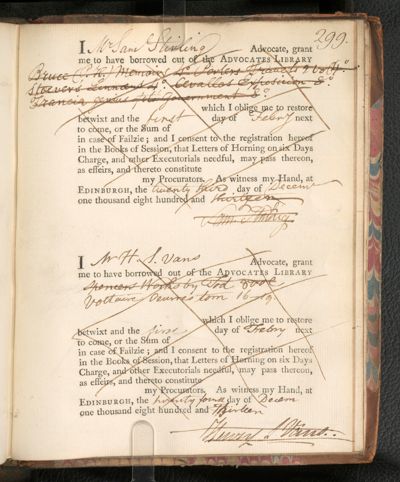 299.
I Mr Saml Stirling Advocate, grant
me to have borrowed out of the ADVOCATES LIBRARY
Bruce
Francia
which I oblige me to restore
betwixt and the first day of Febry next
to come, or the Sum of
in case of Failzie; and I consent to the registration hereof
in the Books of Session, that Letters of Horning on six Days
Charge, and other Executorials needful, may pass thereon,
as effeirs, and thereto constitute
my Procurators. As witness my Hand, at
EDINBURGH, the twenty third day of Decemr
one thousand eight hundred and thirteen
Saml Stirling
I Mr H. S. Vans Advocate, grant
me to have borrowed out of the ADVOCATES LIBRARY
Spencers Works by Tod
Voltaire Oeuvres tom 16
which I oblige me to restore
betwixt and the first day of Febry next
to come, or the Sum of
in case of Failzie; and I consent to the registration hereof
in the Books of Session, that Letters of Horning on six Days
Charge, and other Executorials needful, may pass thereon,
as effeirs, and thereto constitute
my Procurators. As witness my Hand, at
EDINBURGH, the twenty fourth day of Decem
one thousand eight hundred and thirteen
Henry S. Vans.